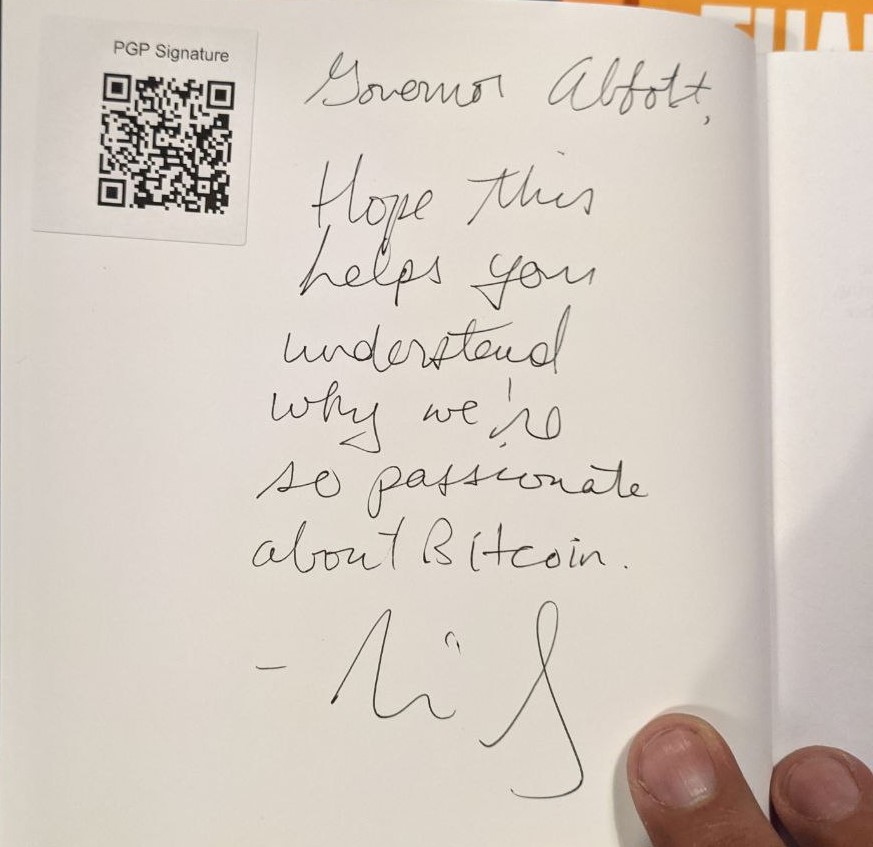 PGP Signature
Governor Abbott,
Hope this
helps you
understand
why we're
so passionate
about Bitcoin.